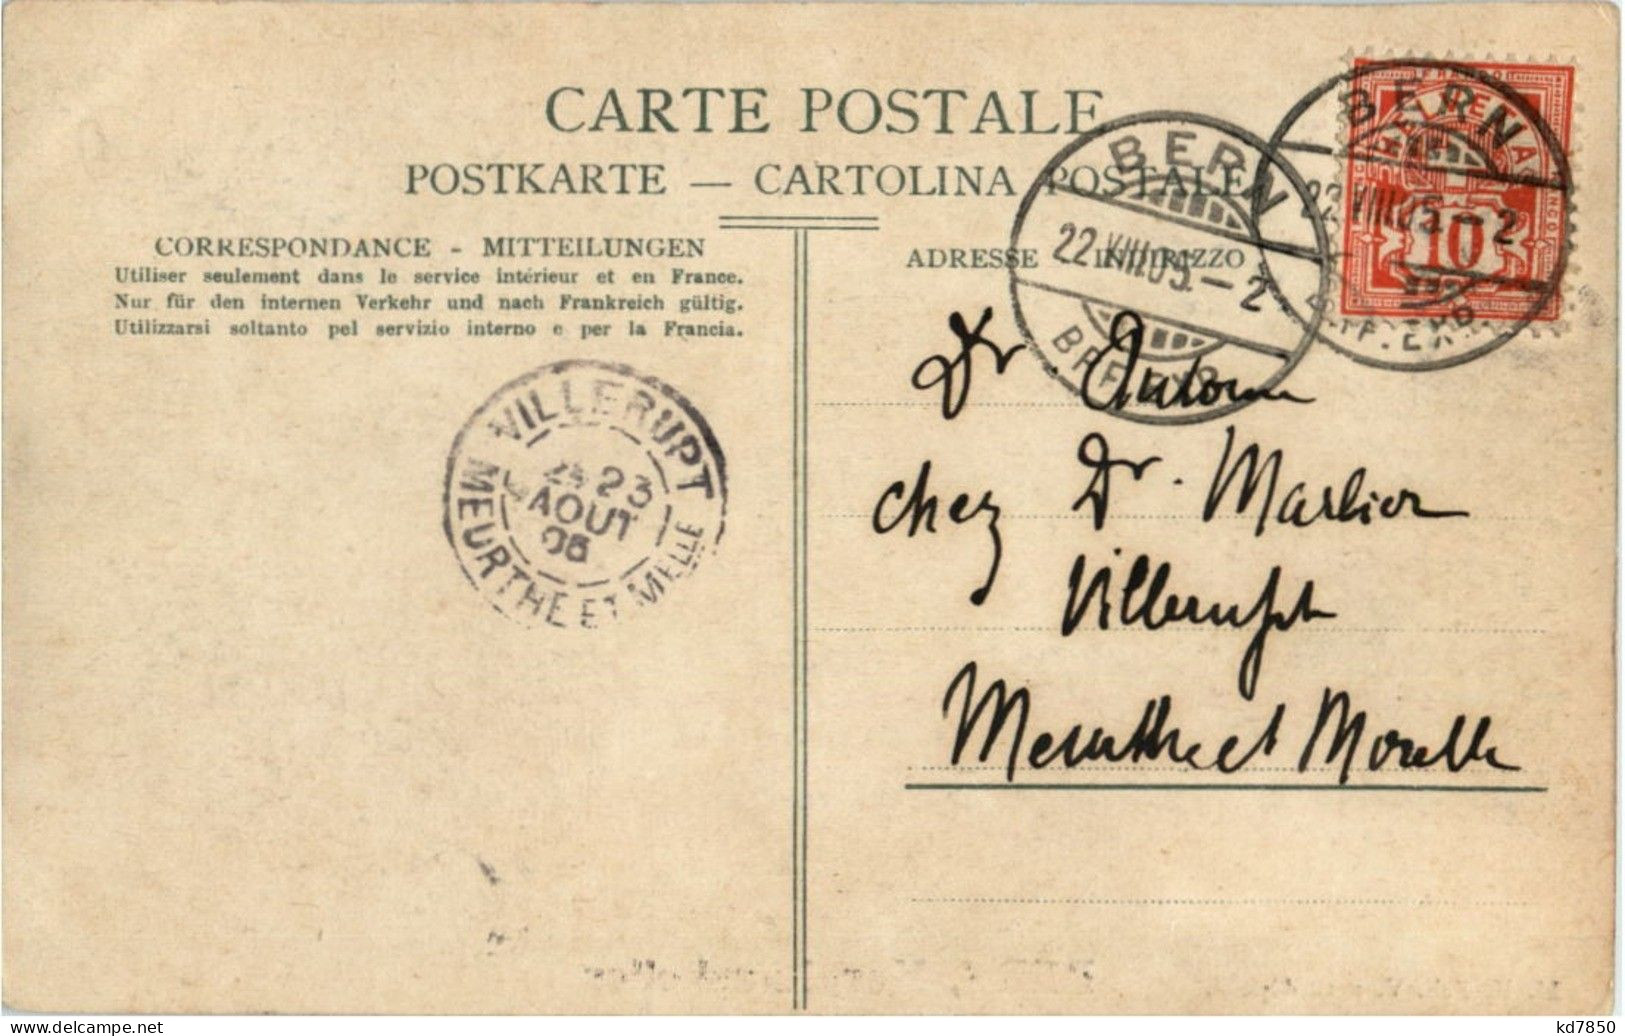 CARTE POSTALE
POSTKARTE — CARTOLINA POSTALE
CORRESPONDANCE - MITTEILUNGEN
Utiliser seulement dans le service intérieur et en France.
Nur für den internen Verkehr und nach Frankreich gültig.
Utilizzarsi soltanto pel servizio interno e per la Francia.
ADRESSE INDIRIZZO
FRANCO
HELVETIA
10
BERN
22.VIII.05.-2
BRF. EXP.
BERN
22.VIII.05.-2
BRF. EXP.
VILLERUPT
23
AOUT
05
MEURTHE ET MELLE
Dr. Antoine
chez Dr. Marlier
Villerupt
Meurthe et Moselle
kd7850